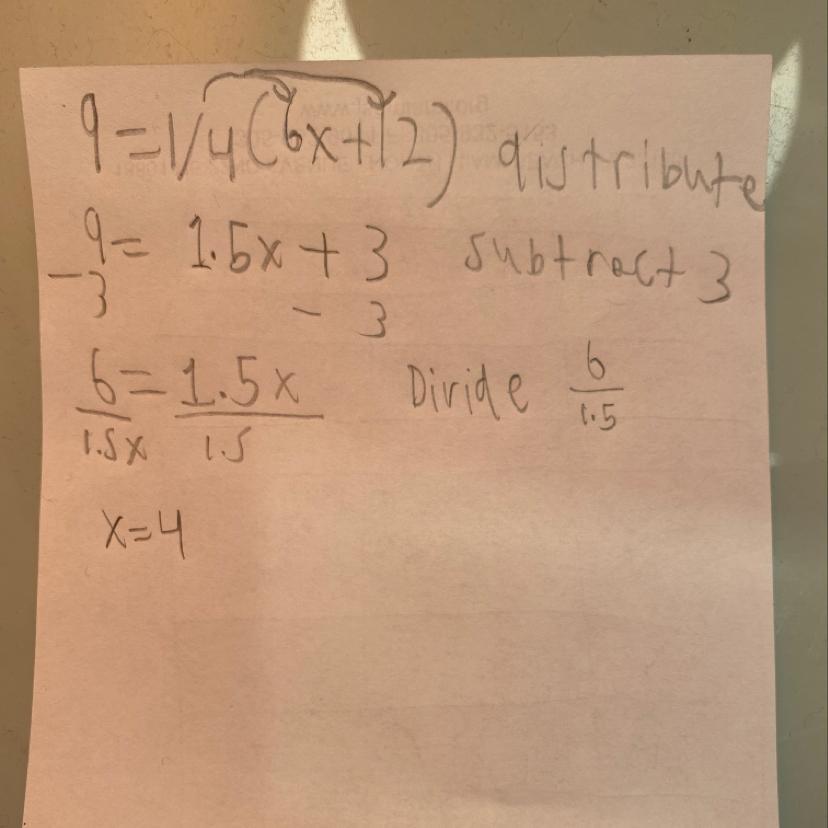 9=1/4(6x+12) distribute
9= 1.5x + 3 subtract 3
-3 - 3
6=1.5x Divide 6
1.5x 1.5 1.5
x=4